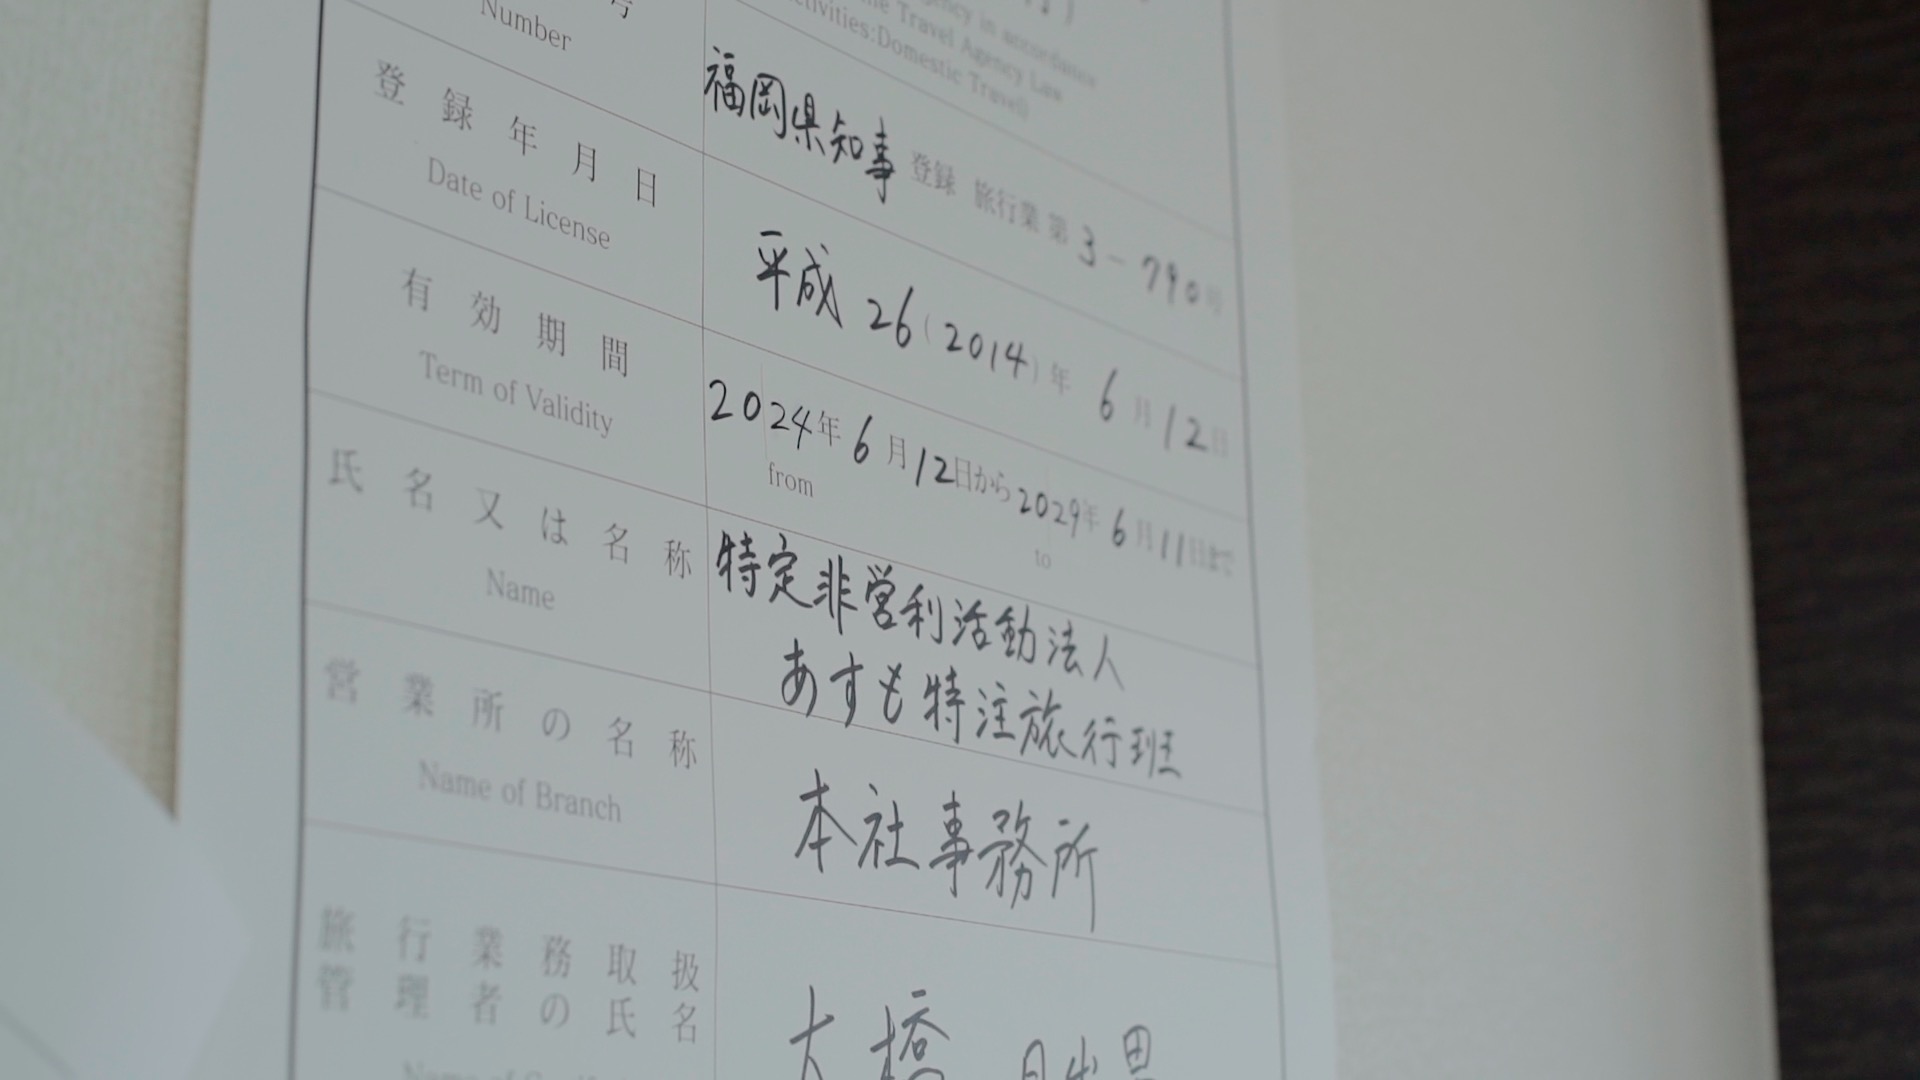 ncy in accordance
Travel Agency Law
ctivities:Domestic Travel)
号
Number
福岡県知事 登録 旅行業 第 3-790号
登録年月日
Date of License
平成 26(2014)年 6月12日
有効期間
Term of Validity
2024年6月12日から2029年6月11日まで
from
to
氏名又は名称
Name
特定非営利活動法人
あすも特注旅行班
営業所の名称
Name of Branch
本社事務所
旅行業務取扱
管理者の氏名
大橋